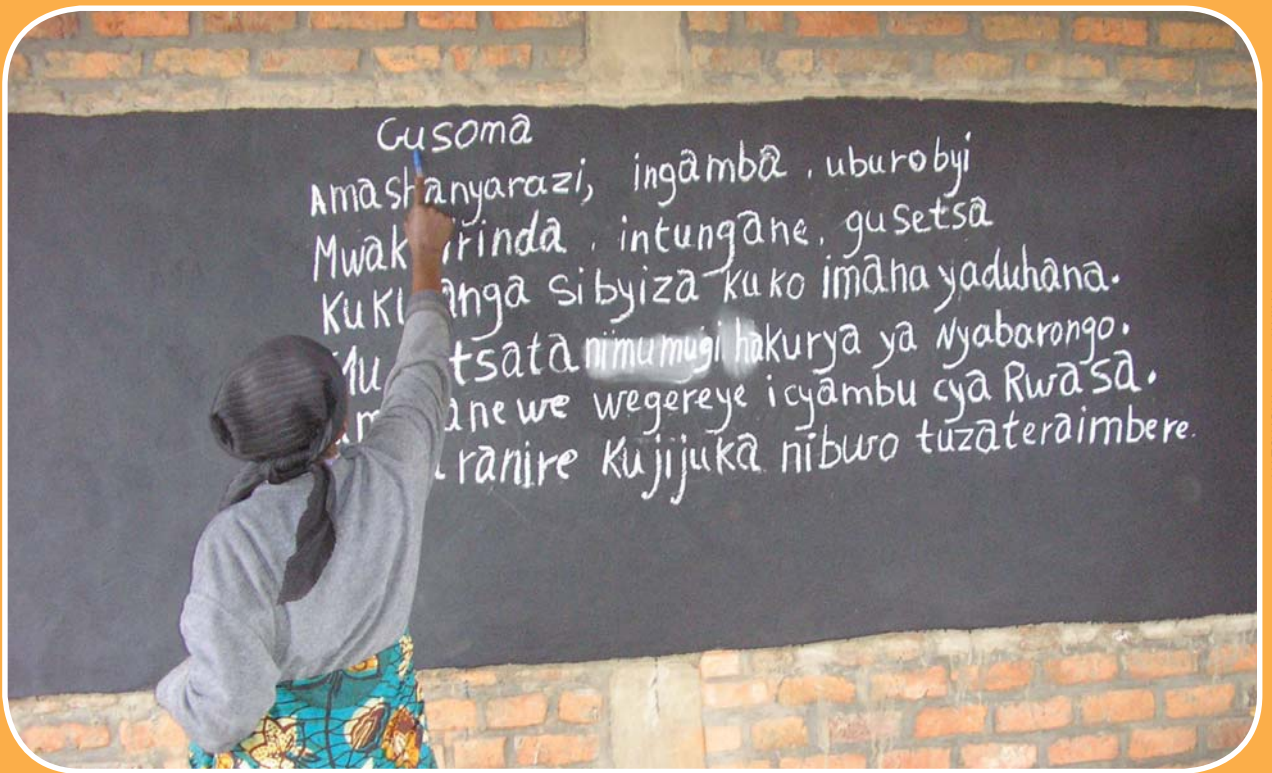 Gusoma
Amashanyarazi, ingamba, uburobyi
intungane, gusetsa
sibyiza kuko imana yaduhana.
nimumugi hakurya ya Nyabarongo.
wegereye icyambu cya Rwasa.
kujijuka nibwo tuzateraimbere.